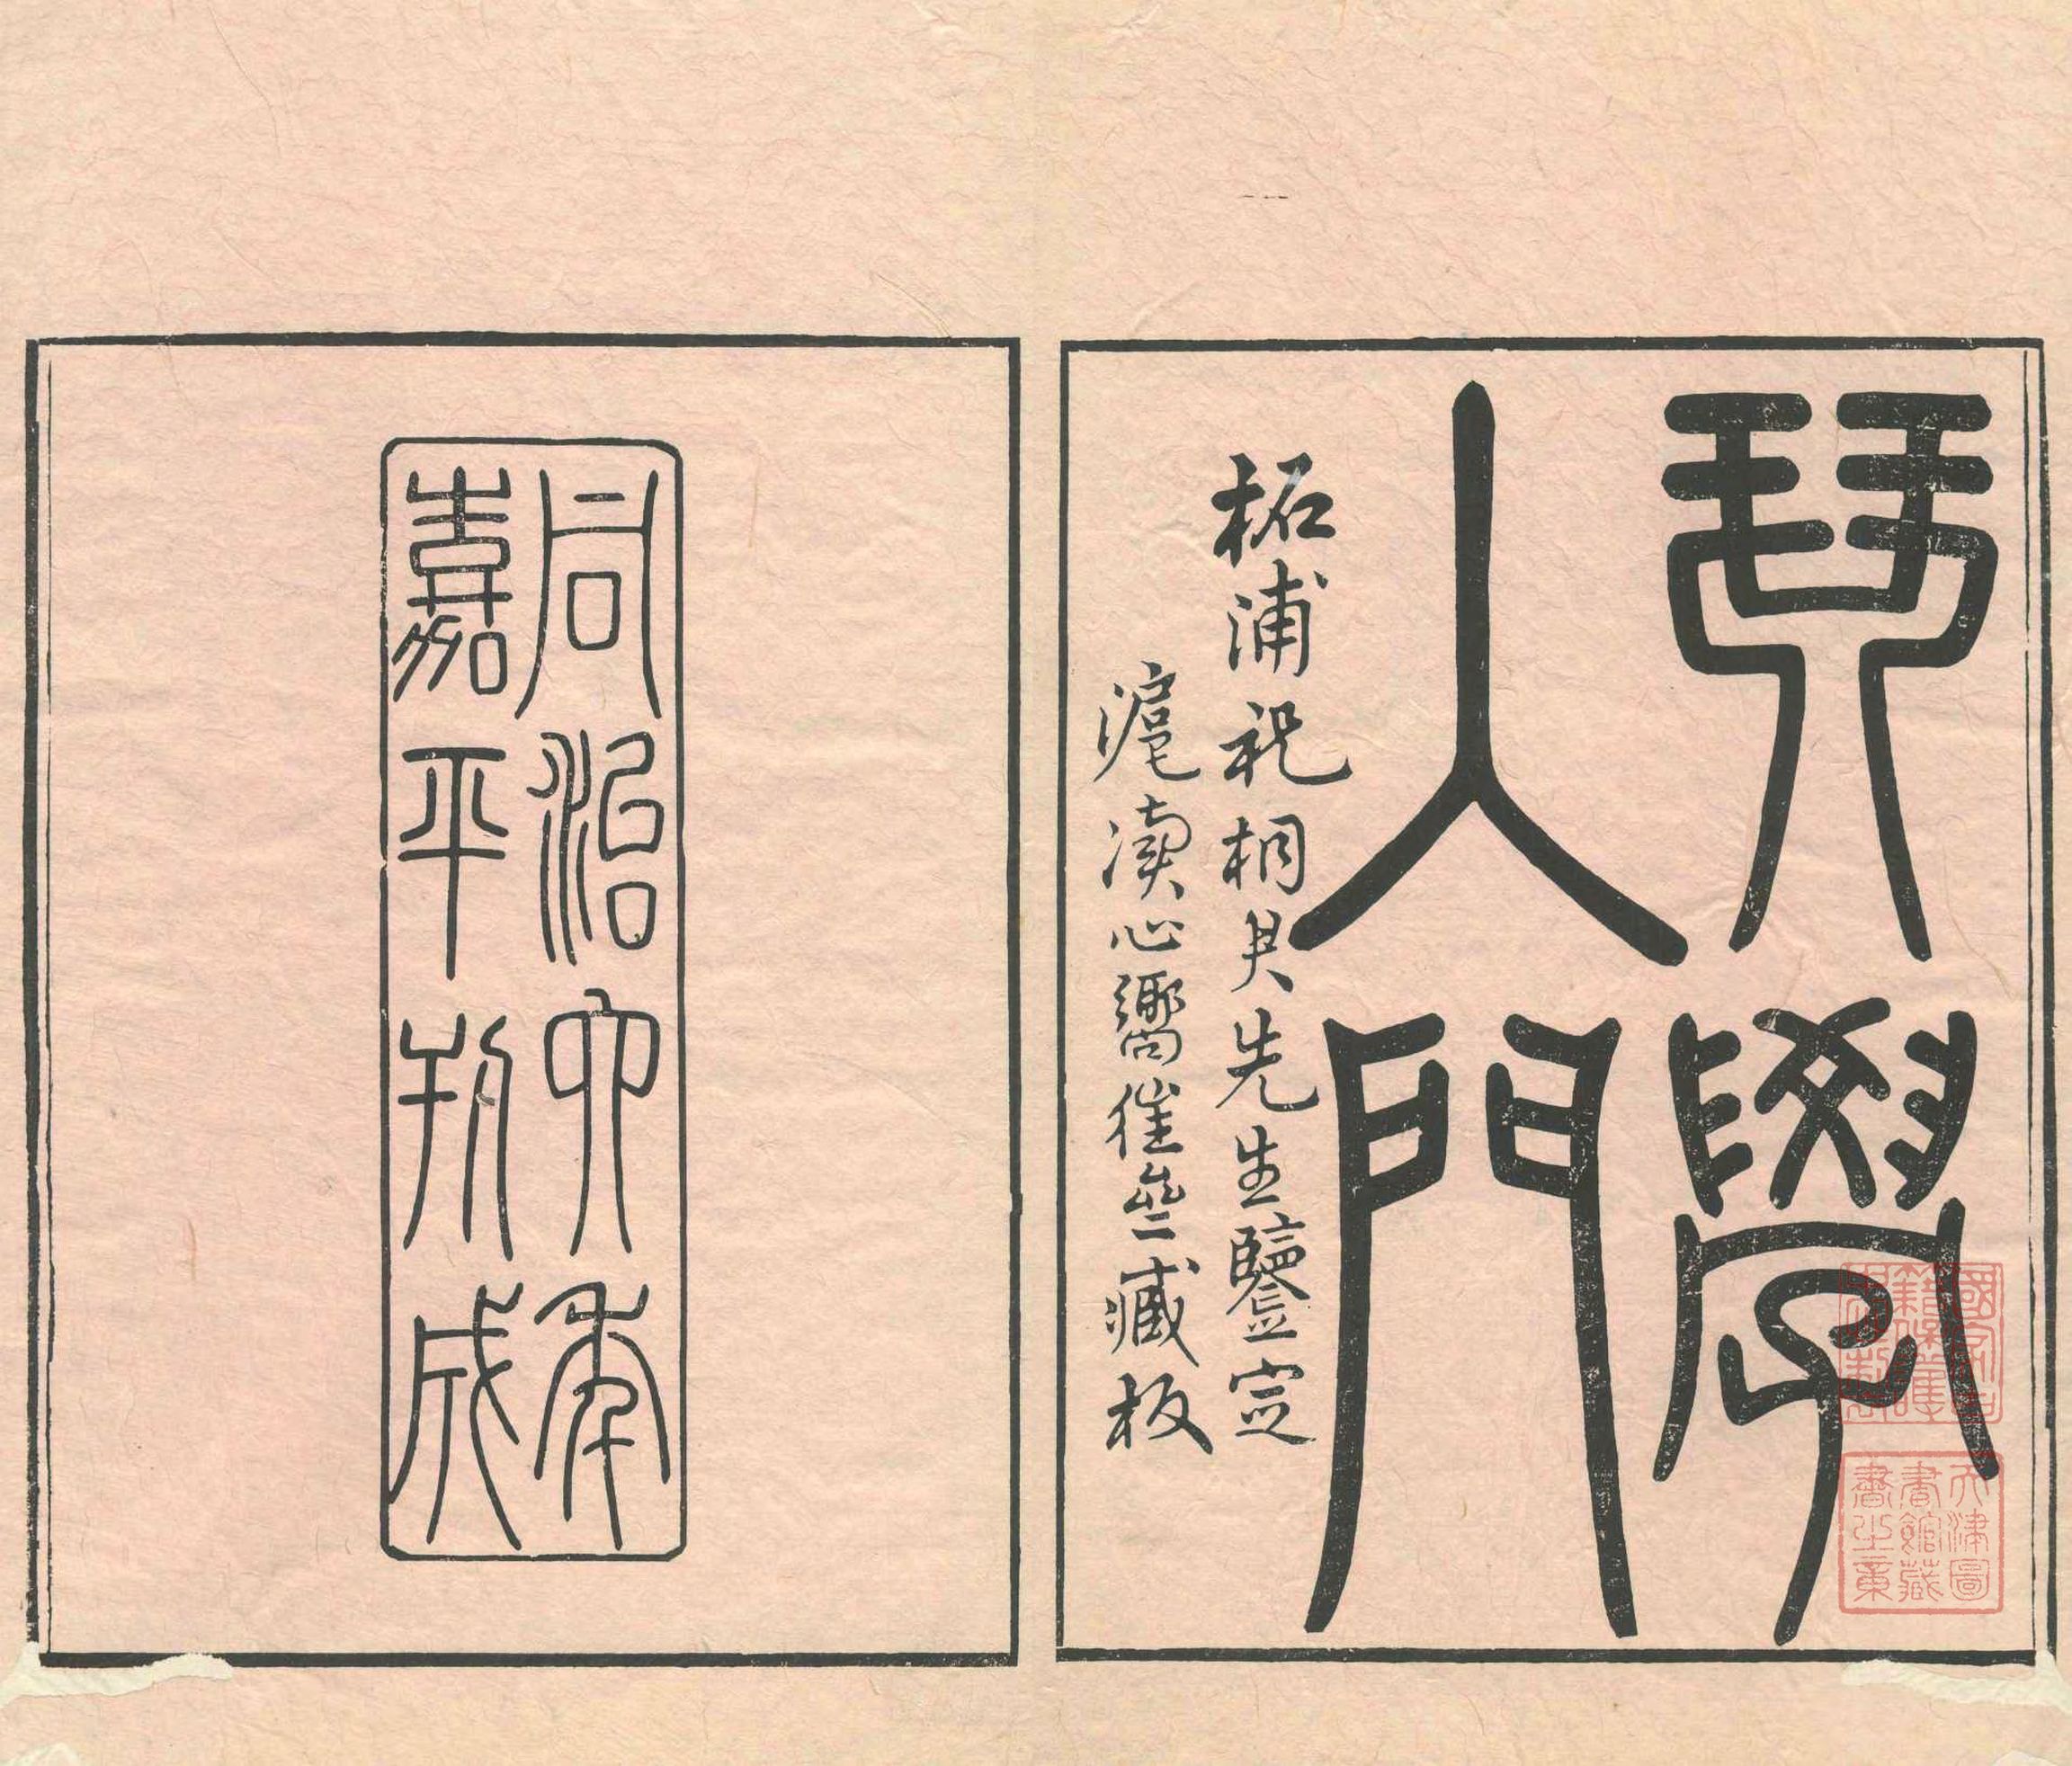 琴學
入門
柘浦祝桐君先生鑒定
滬瀆心嚮徃齋藏板
同治六年
嘉平刊成
國家古
籍保護
天津圖
書館藏
書之章